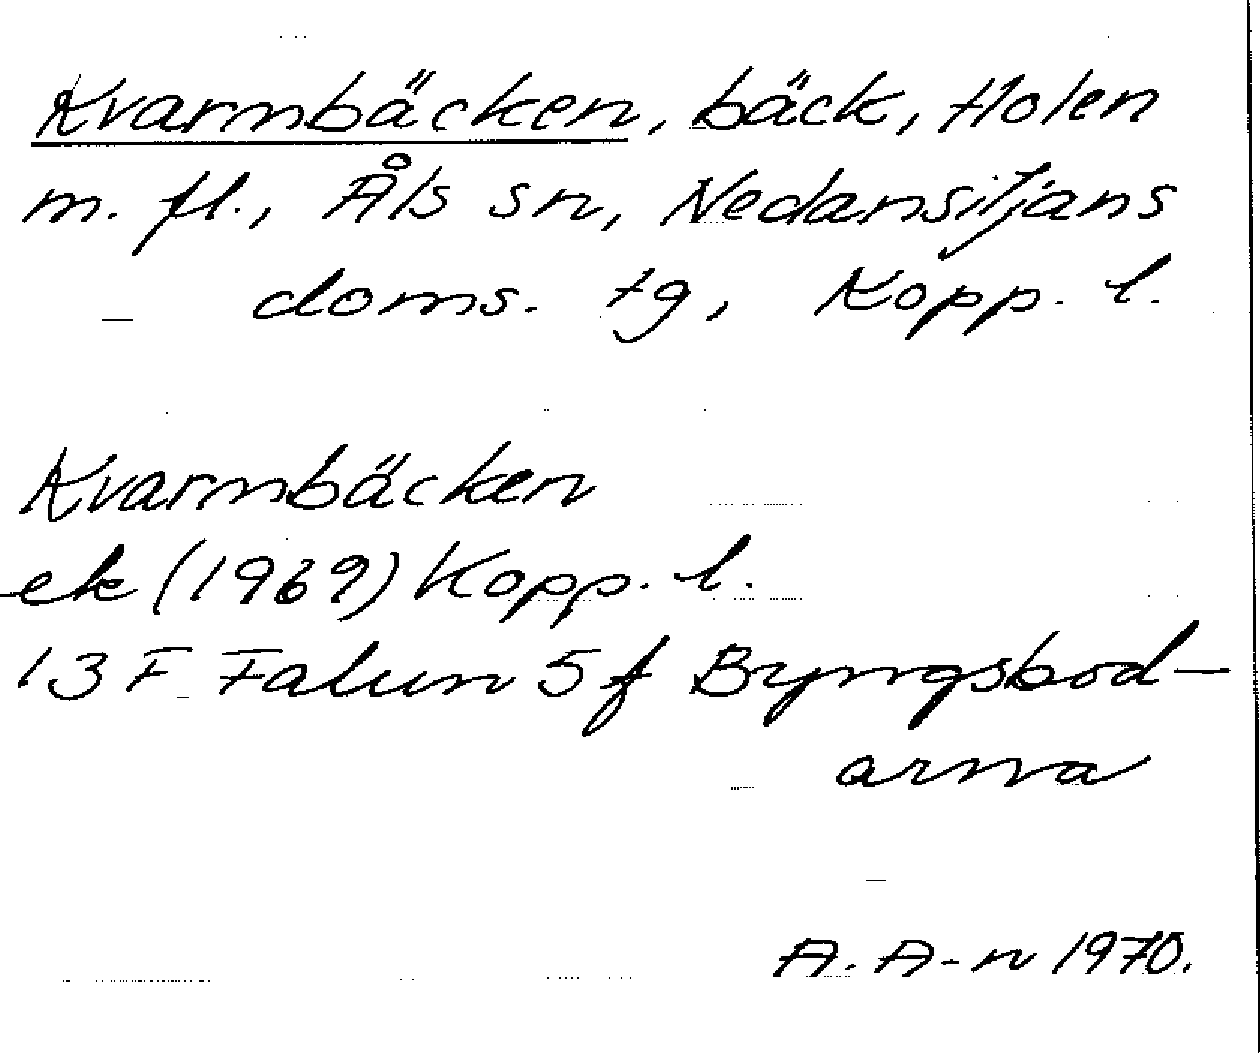 Kvarnbäcken, bäck, Holen
m. fl., Åls sn, Nedansiljans
doms. tg, Kopp. l.
Kvarnbäcken
ek (1969) Kopp. l.
13 F Falun 5 f Byngsbod-
arna
A. A-n 1970.